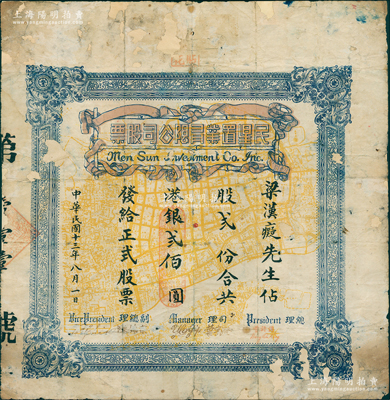 上海陽明拍賣
民星置業有限公司股票
Men Sun Investment Co. Inc.
梁漢疲先生佔
股弍份合共
港銀弍佰圓
發給正式股票
中華民國十三年八月一日
第
號
Vice President 理總副
Manager 理司
President 理總
上海陽明拍賣